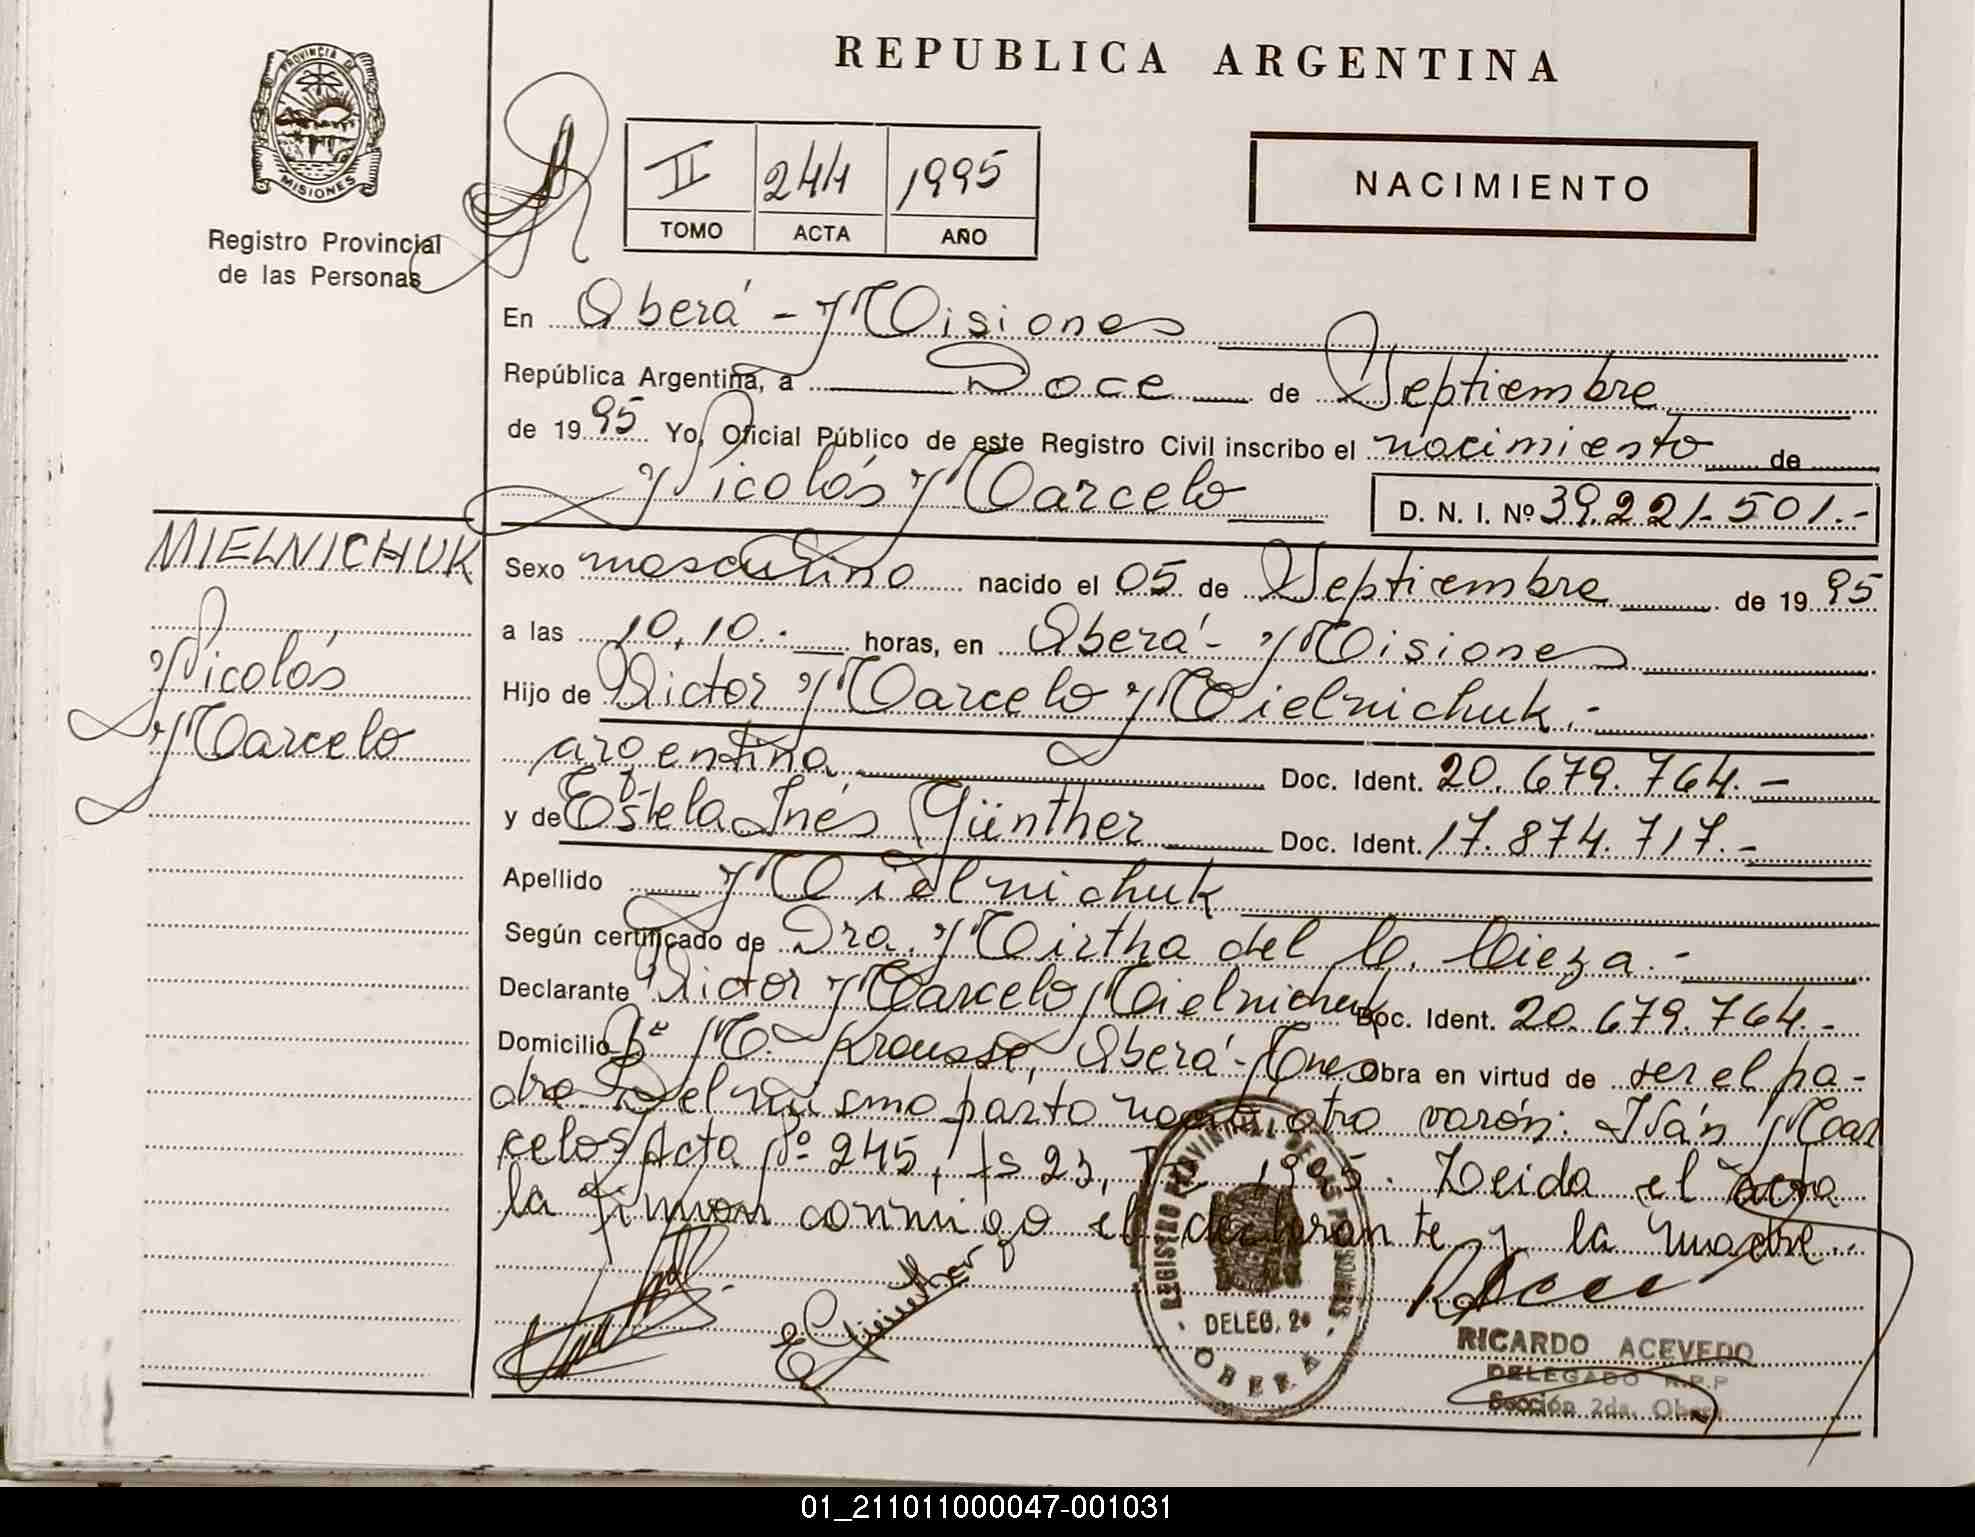 REPUBLICA ARGENTINA
PROVINCIA DE
MISIONES
Registro Provincial
de las Personas
II 244 1995
TOMO ACTA AÑO
NACIMIENTO
En Oberá - Misiones
República Argentina, a Doce de Septiembre
de 1995 Yo, Oficial Público de este Registro Civil inscribo el nacimiento de
Nicolás Marcelo D. N. I. Nº 39.221.501.-
MIELNICHUK
Nicolás
Marcelo
Sexo masculino nacido el 05 de Septiembre de 1995
a las 10,10.- horas, en Oberá - Misiones
Hijo de Victor Marcelo Mielnichuk.-
argentina Doc. Ident. 20.679.764.-
y de Estela Inés Günther Doc. Ident. 17.874.717.-
Apellido Mielnichuk
Según certificado de Dra. Mirtha del C. Cieza.-
Declarante Victor Marcelo Mielnichuk Doc. Ident. 20.679.764.-
Domicilio Bº M. Krausse, Oberá - Mnes Obra en virtud de ser el pa-
dre. Del mismo parto nació otro varón: Iván Mar
celo, Acta Nº 245, fs 23, 1995. Leida el acta
la firman conmigo el declarante y la madre.
E Günther
REGISTRO PROVINCIAL DE LAS PERSONAS
DELEG. 2ª
OBERA
RICARDO ACEVEDO
DELEGADO R.P.P
Sección 2da. Oberá
01_211011000047-001031